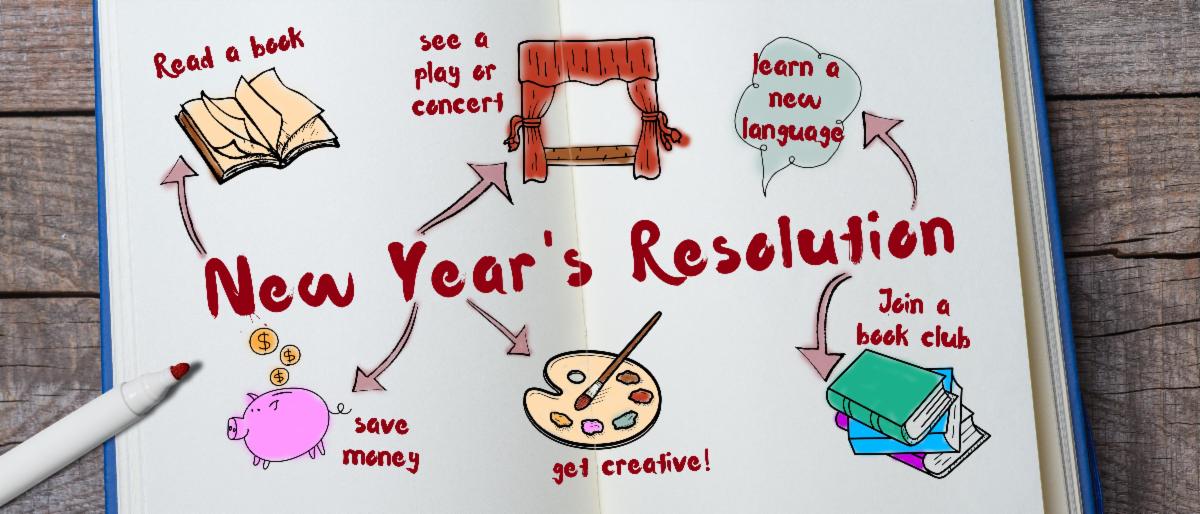 Read a book
see a
play or
concert
learn a
new
language
New Year's Resolution
$
$
$
save
money
get creative!
Join a
book club